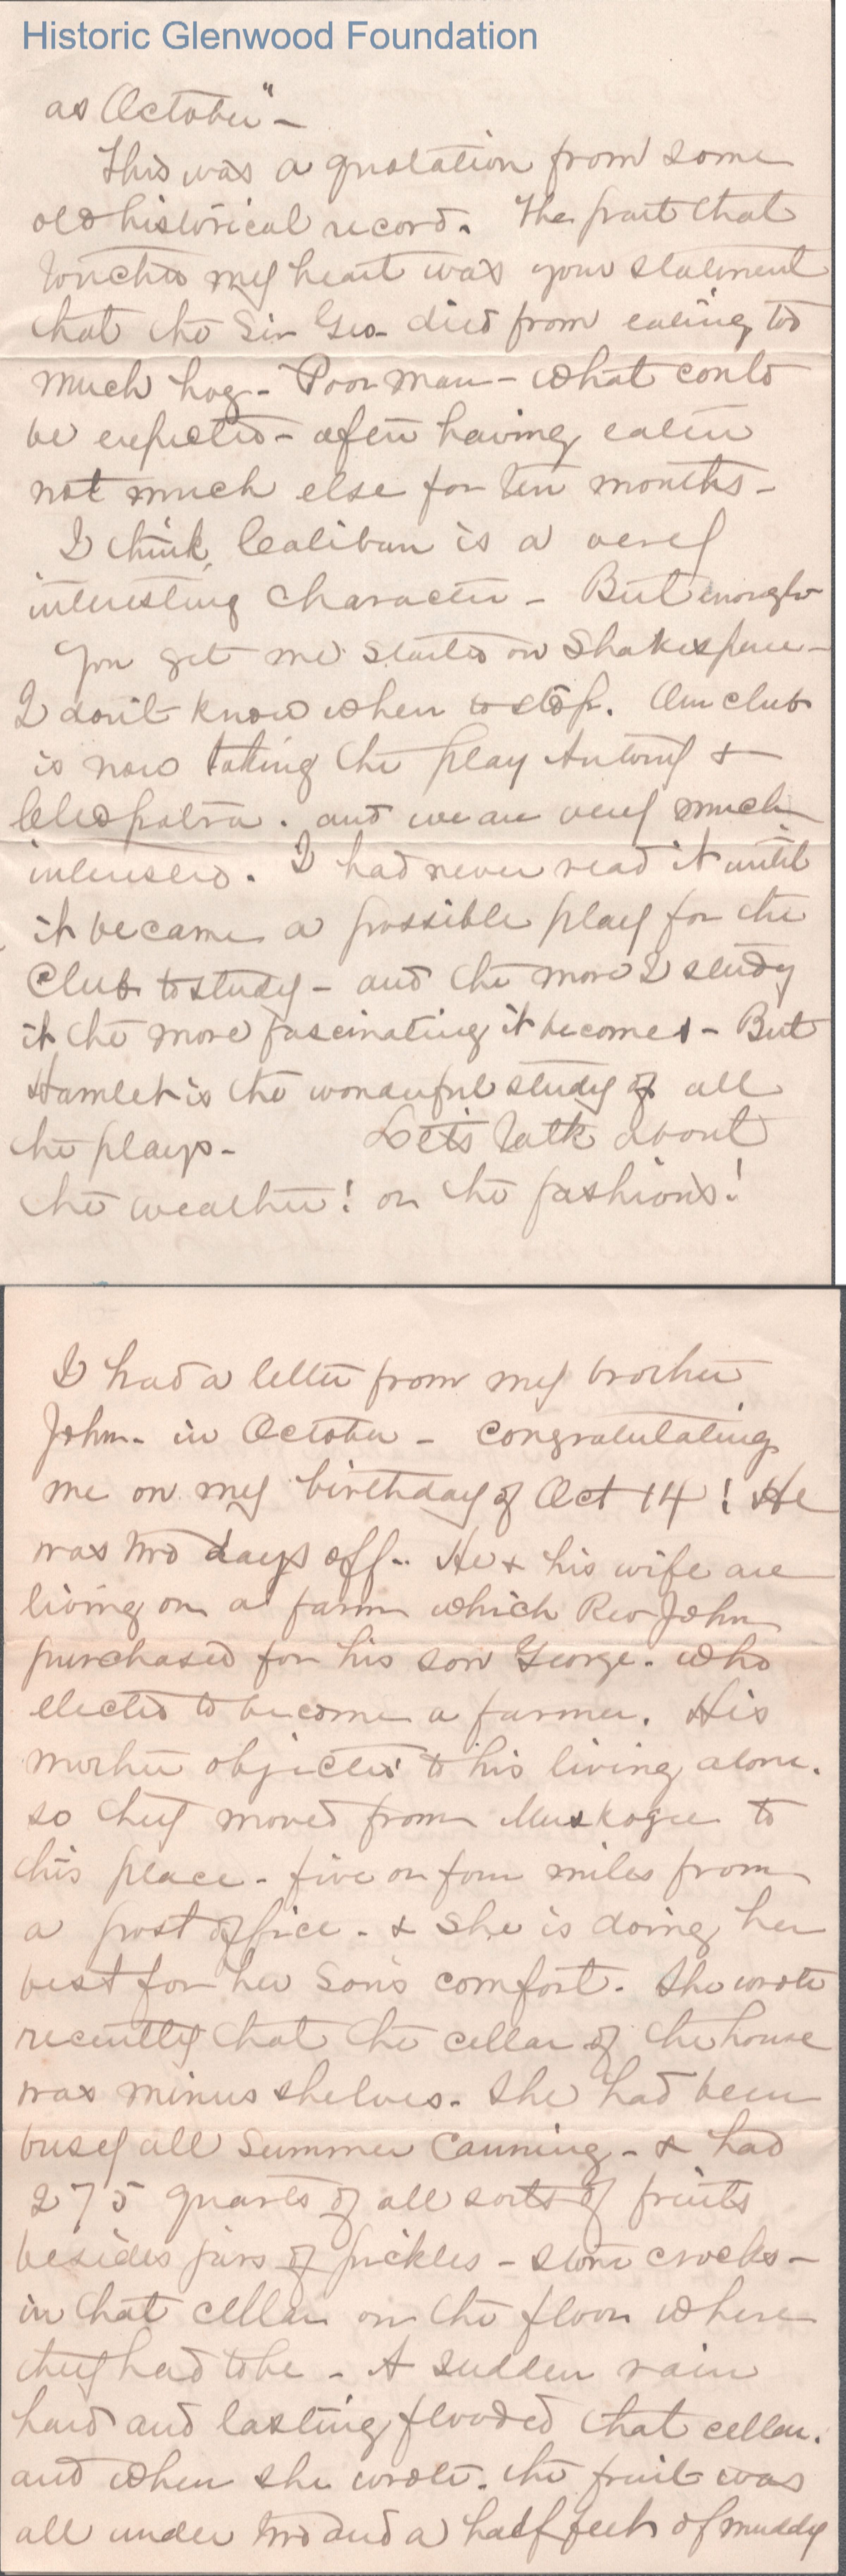 Historic Glenwood Foundation
as October" -
This was a quotation from some
old historical record. The part that
touched my heart was your statement
that the Sir Geo. died from eating too
much hog - Poor man - what could
be expected - after having eaten
not much else for ten months -
I think Caliban is a very
interesting character - But enough
You get me started on Shakespeare -
I don't know when to stop. Our club
is now taking the play Antony &
Cleopatra. and we are very much
interested. I had never read it until
it became a possible play for the
Club to study - and the more I study
it the more fascinating it becomes - But
Hamlet is the wonderful study of all
the plays - Let's talk about
the weather! or the fashions!
I had a letter from my brother
John - in October - congratulating
me on my birthday of Oct 14! He
was two days off - He & his wife are
living on a farm which Rev John
purchased for his son George. who
elected to become a farmer. His
mother objected to his living alone.
so they moved from Muskogee to
this place - five or four miles from
a post office. & she is doing her
best for her son's comfort. She wrote
recently that the cellar of the house
was minus shelves. She had been
busy all Summer canning - & had
275 quarts of all sorts of fruits
besides jars of pickles - stone crocks -
in that cellar on the floor where
they had to be - A sudden rain
hard and lasting flooded that cellar.
and when she wrote. the fruit was
all under two and a half feet of muddy